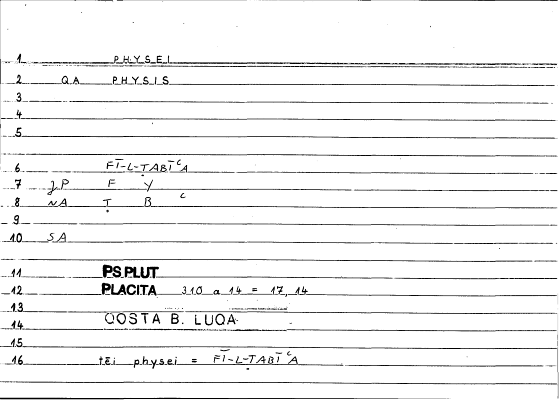 1 PHYSEI
2 QA PHYSIS
3
4
5
6 FĪ-L-ṬABĪᶜA
7 JP F Y
8 NA Ṭ B ᶜ
9
10 SA
11 PS.PLUT
12 PLACITA 310 a 14 = 17, 14
13
14 QOSTA B. LUQA
15
16 tēi physei = FĪ-L-ṬABĪᶜA